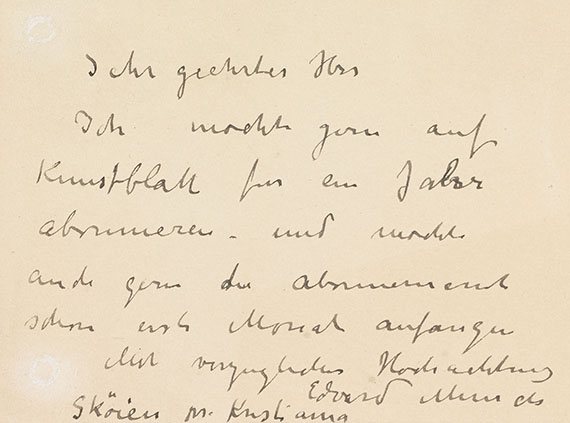 Sehr geehrter Herr
Ich mochte gern auf
Kunstblatt fur ein Jahr
abonneren - und mochte
auch gern die abonnement
schon erste Monat anfangen
Mit vorzuglicher Hochachtung
Edvard Munch
Sköien pr. Kristiania